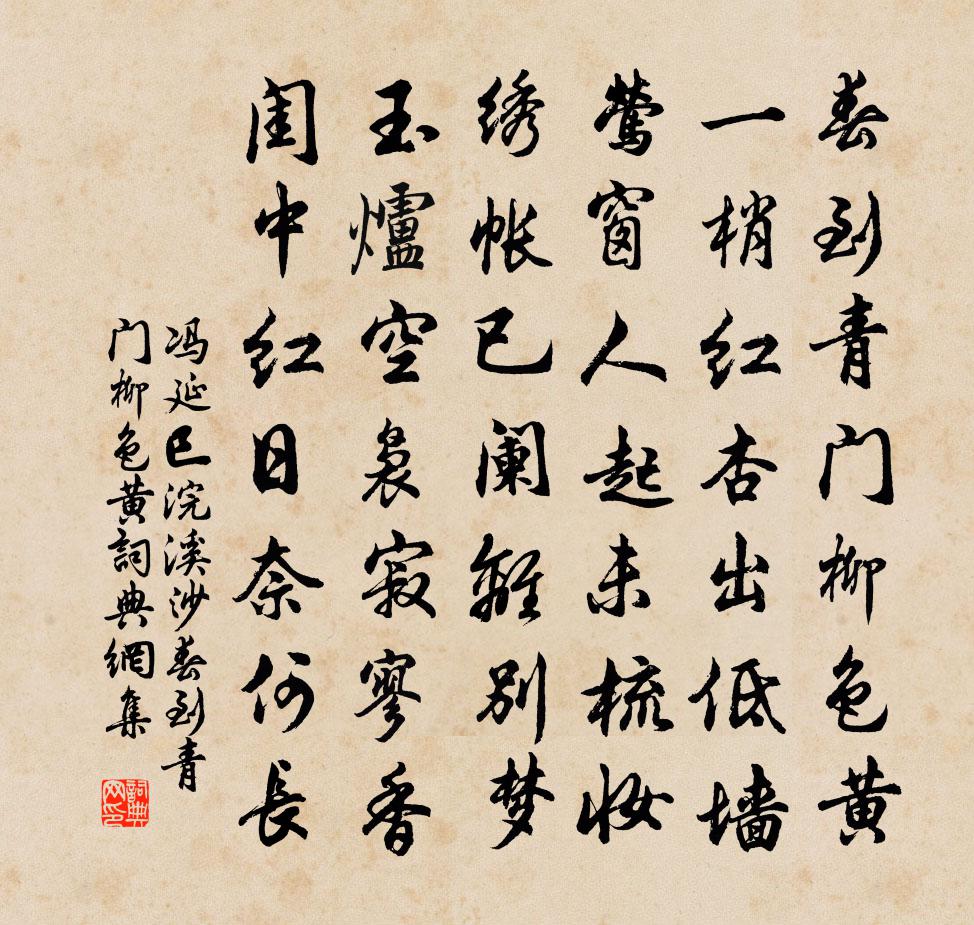 春到青门柳色黄
一梢红杏出低墙
莺窗人起未梳妆
绣帐已阑离别梦
玉爐空袅寂寥香
闺中红日奈何長
冯延巳浣溪沙春到青
门柳色黄詞典網集
詞典
网印